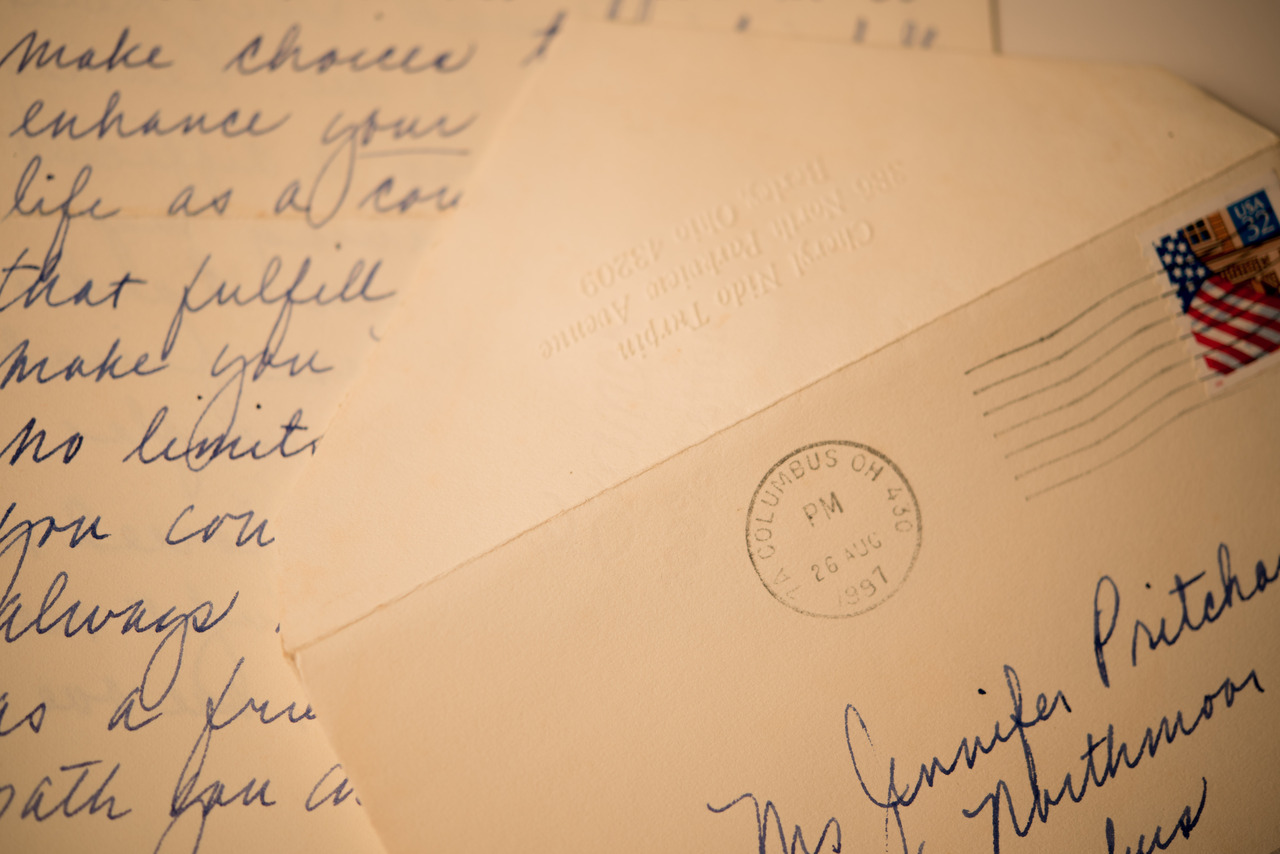 make choices
enhance your
life as a
that fulfill
make you
no limits
you
always
as a
path you
Cheryl Nido Turpin
380 North Parkview Avenue
Bexley, Ohio 43209
USA
32
COLUMBUS OH 430
PM
26 AUG
1997
Ms Jennifer
Northmoor